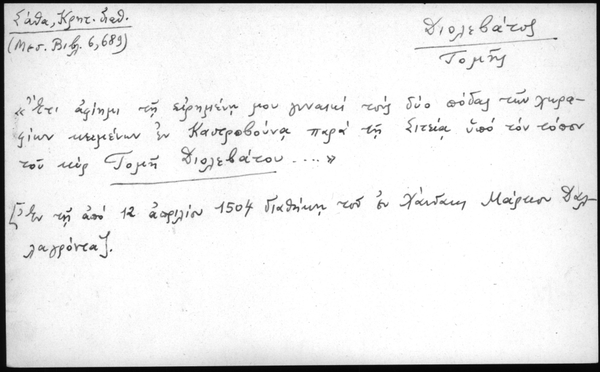 Σάθα, Κρητ. διαθ.
(Μεσ. Βιβλ. 6, 689)
Διολεβάτος
Τομῆς
«Ἔτι ἀφίημι τῇ εἰρημένῃ μου γυναικί τούς δύο πόδας τῶν χωρα-
φίων κειμένων ἐν Καστροβούνᾳ παρά τῇ Σιτείᾳ ὑπό τόν τόπον
τοῦ κύρ Τομῆ Διολεβάτου ....»
[Ἐν τῇ ἀπό 12 ἀπριλίου 1504 διαθήκῃ τοῦ ἐν Χάνδακι Μάρκου Δαλ-
λαγρόντα].